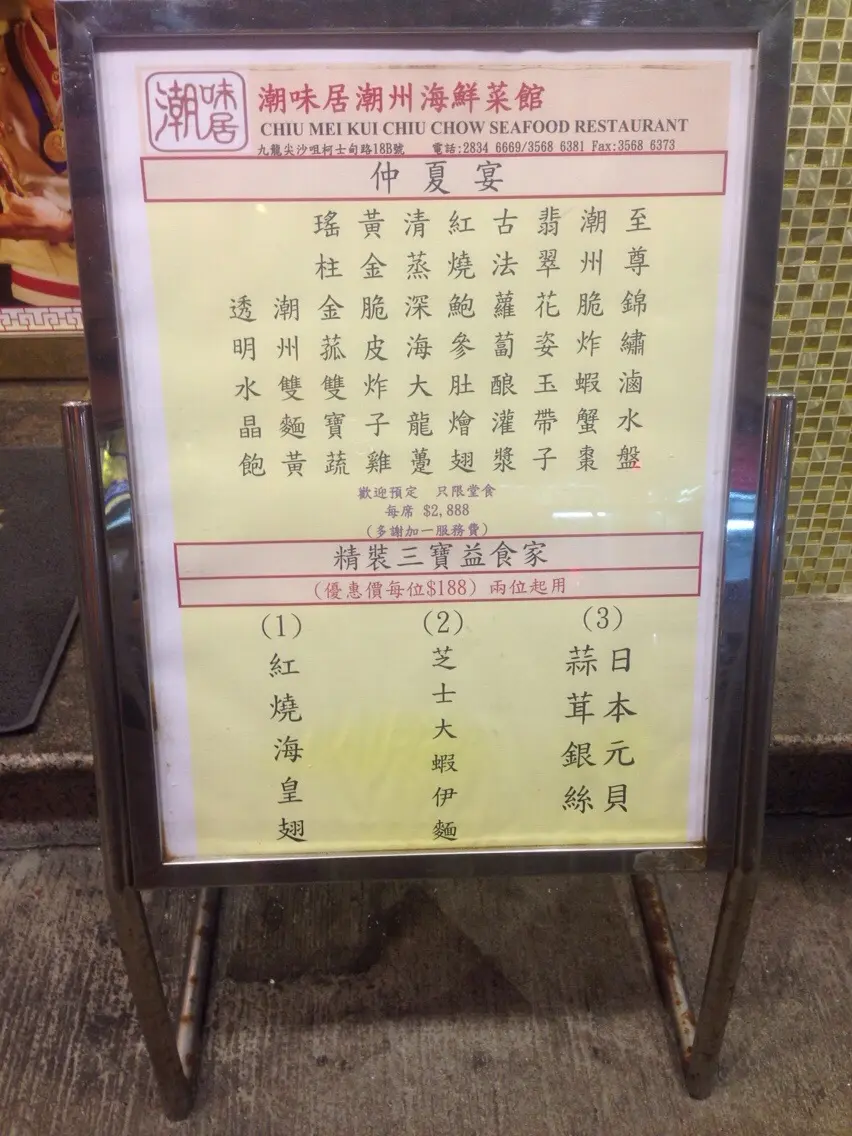 潮味居
潮味居潮州海鮮菜館
CHIU MEI KUI CHIU CHOW SEAFOOD RESTAURANT
九龍尖沙咀柯士甸路18B號 電話:2834 6669/3568 6381 Fax:3568 6373
仲夏宴
至尊錦繡滷水盤
潮州脆炸蝦蟹棗
翡翠花姿玉帶子
古法蘿蔔酿灌漿
紅燒鮑參肚燴翅
清蒸深海大龍躉
黃金脆皮炸子雞
瑤柱金菰雙寶蔬
潮州雙麵黃
透明水晶飽
歡迎預定 只限堂食
每席 $2,888
(多謝加一服務費)
精裝三寶益食家
(優惠價每位$188) 兩位起用
(1)
紅燒海皇翅
(2)
芝士大蝦伊麵
(3)
日本元貝
蒜茸銀絲